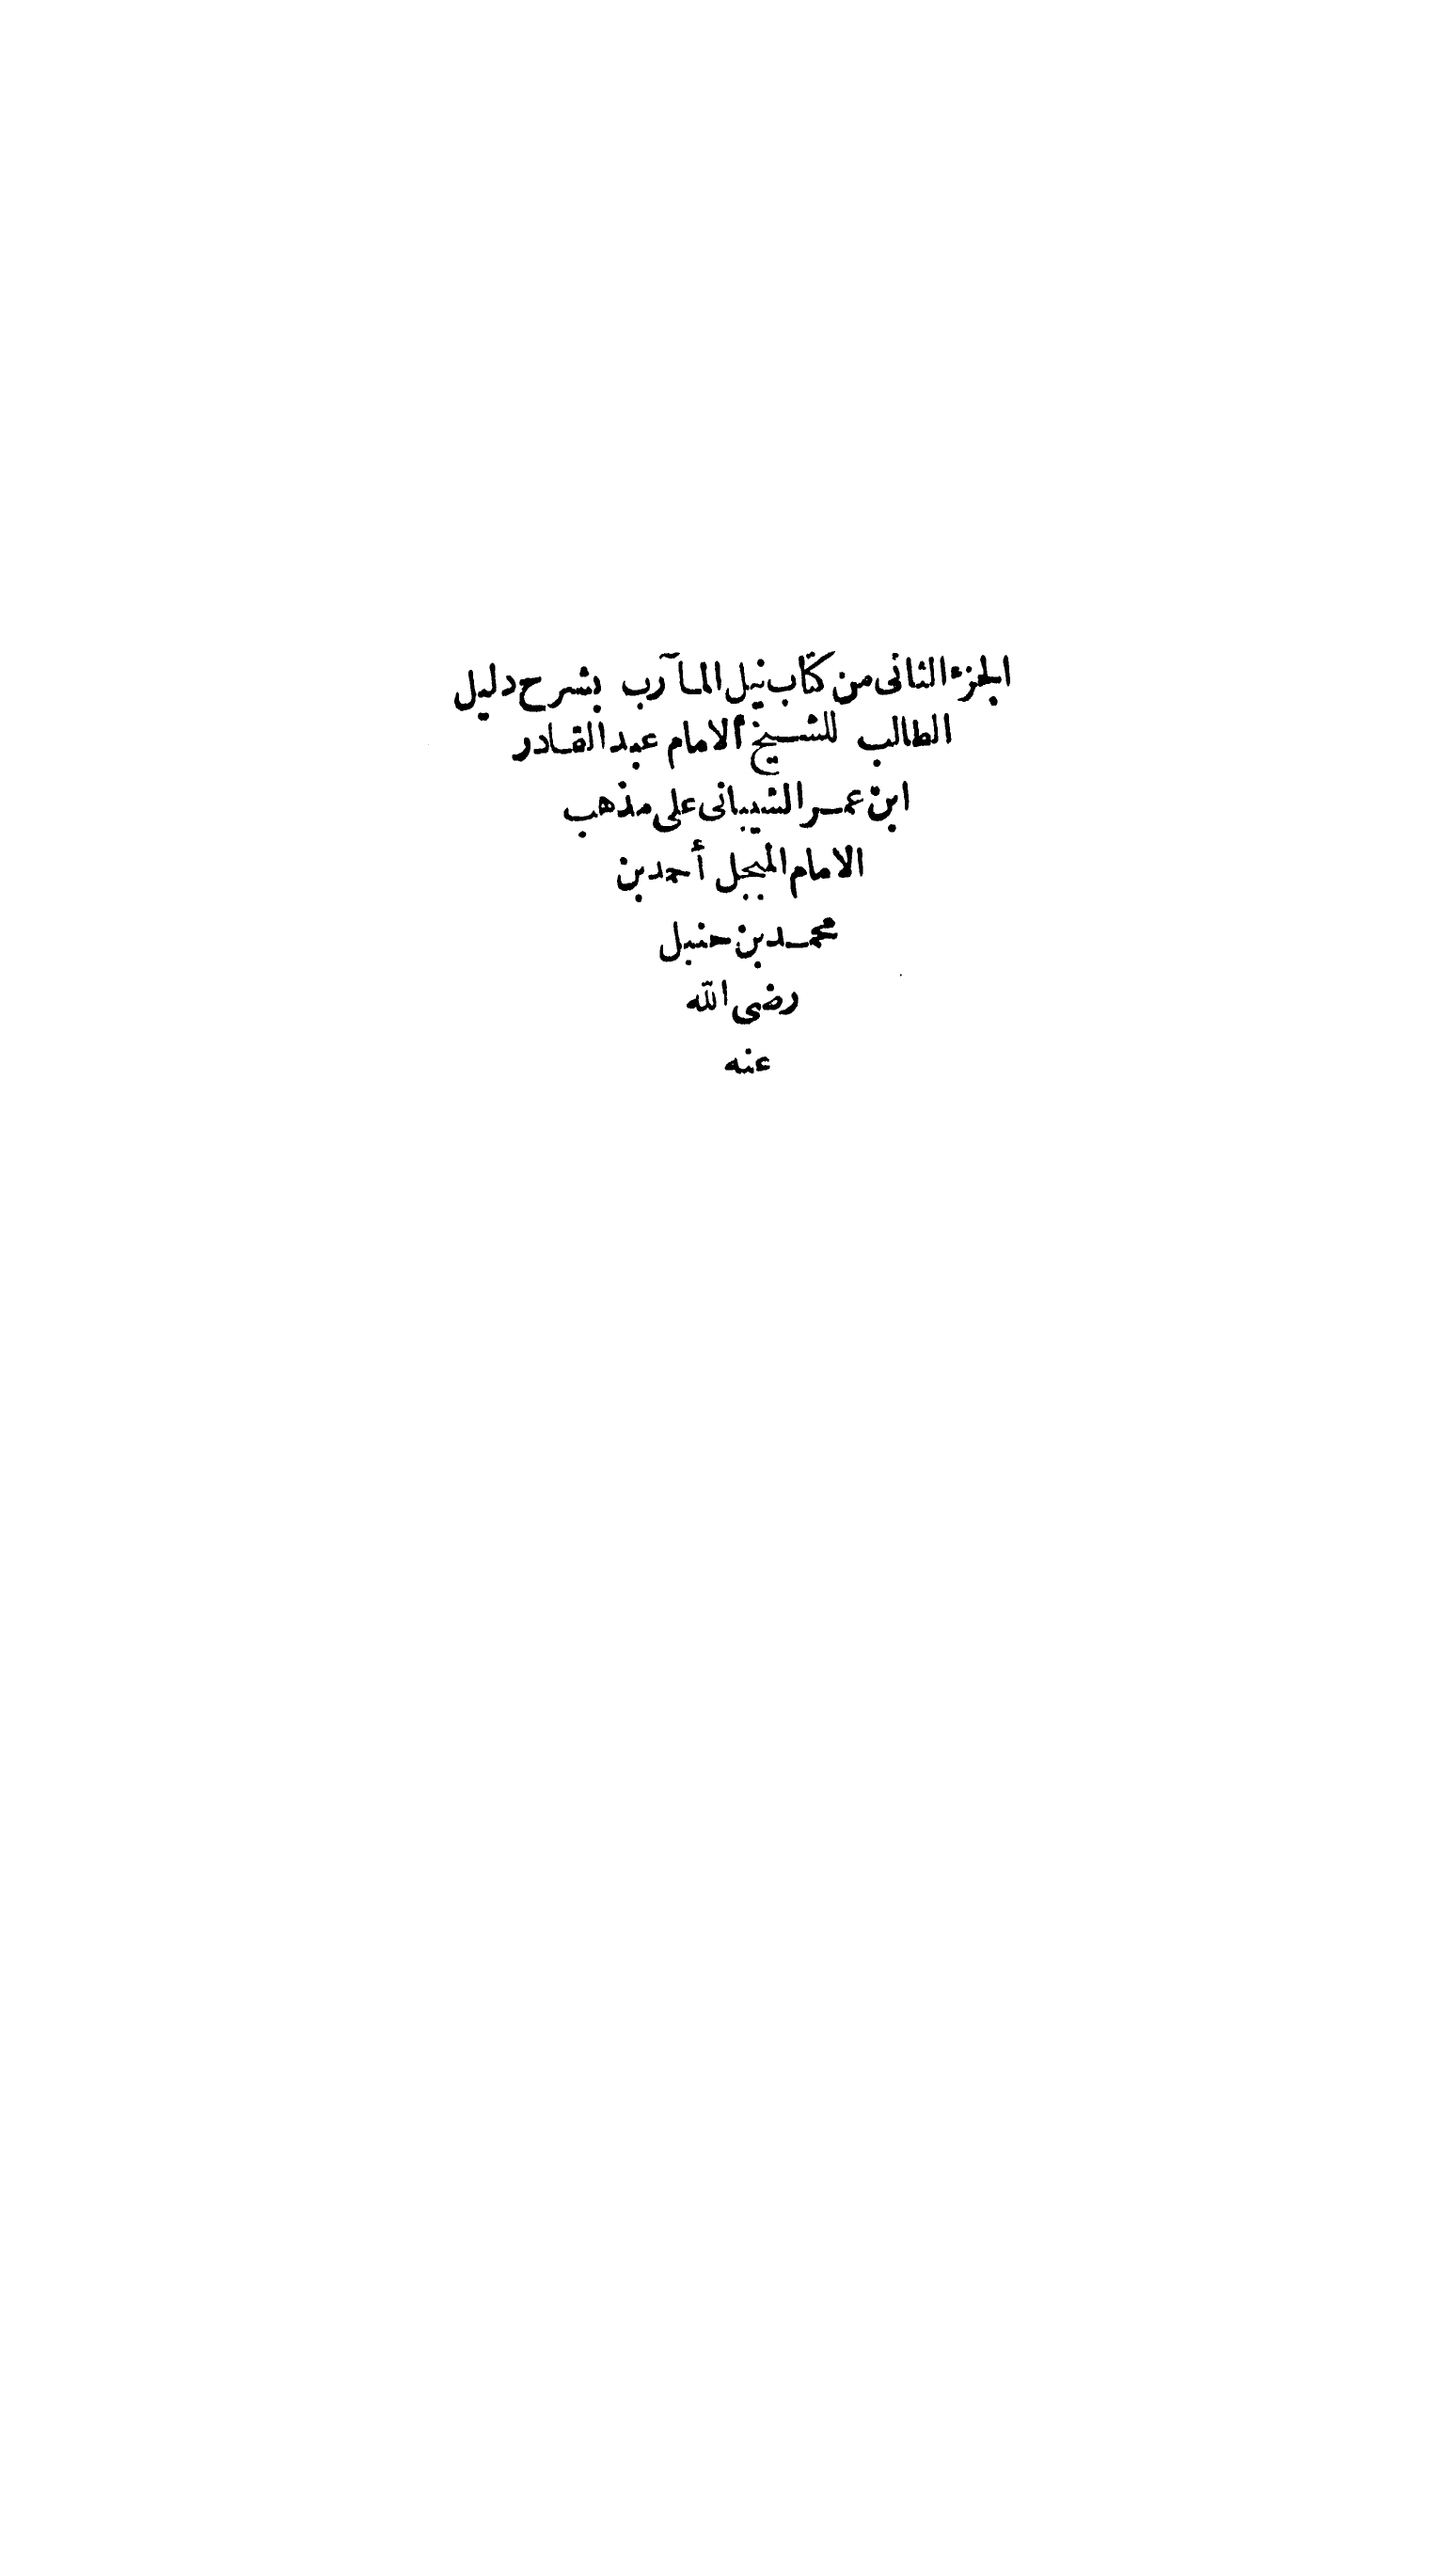 الجزء الثانى من كتاب نيل المآرب بشرح دليل
الطالب للشيخ الامام عبد القادر
ابن عمر الشيبانى على مذهب
الامام المبجل أحمد بن
محمد بن حنبل
رضى الله
عنه